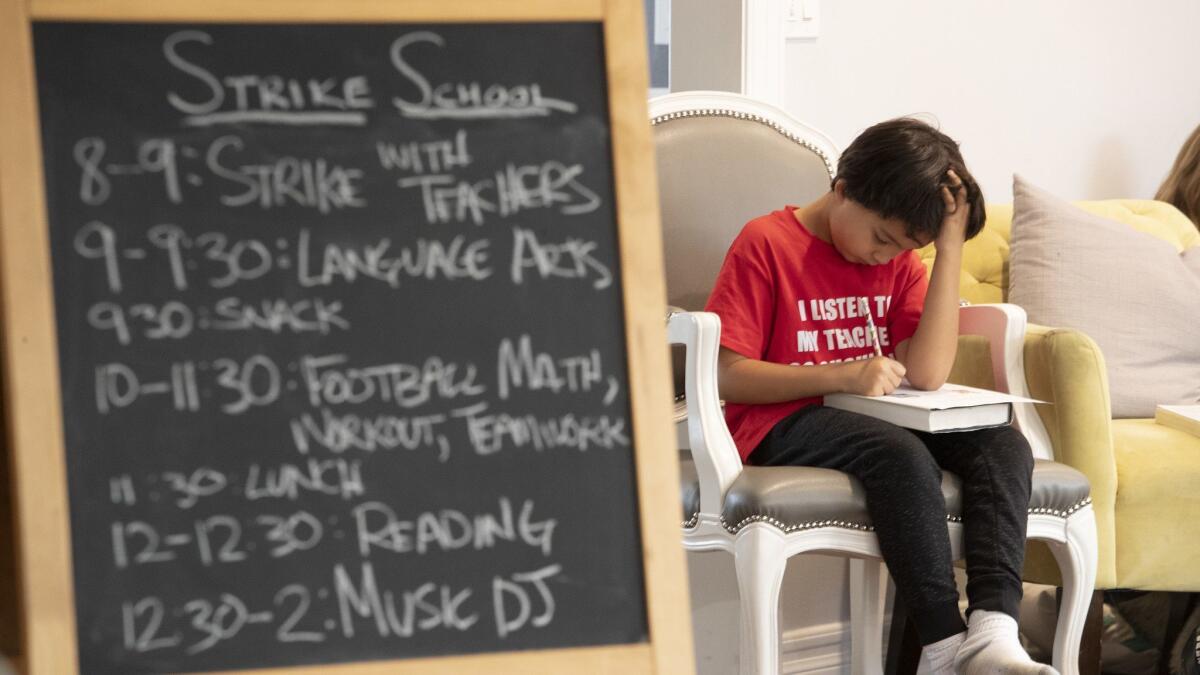 STRIKE SCHOOL
8-9: STRIKE WITH TEACHERS
9-9:30: LANGUAGE ARTS
9:30: SNACK
10-11:30: FOOTBALL MATH,
WORKOUT, TEAMWORK
11:30 LUNCH
12-12:30: READING
12:30-2: MUSIC DJ
I LISTEN TO
MY TEACHE